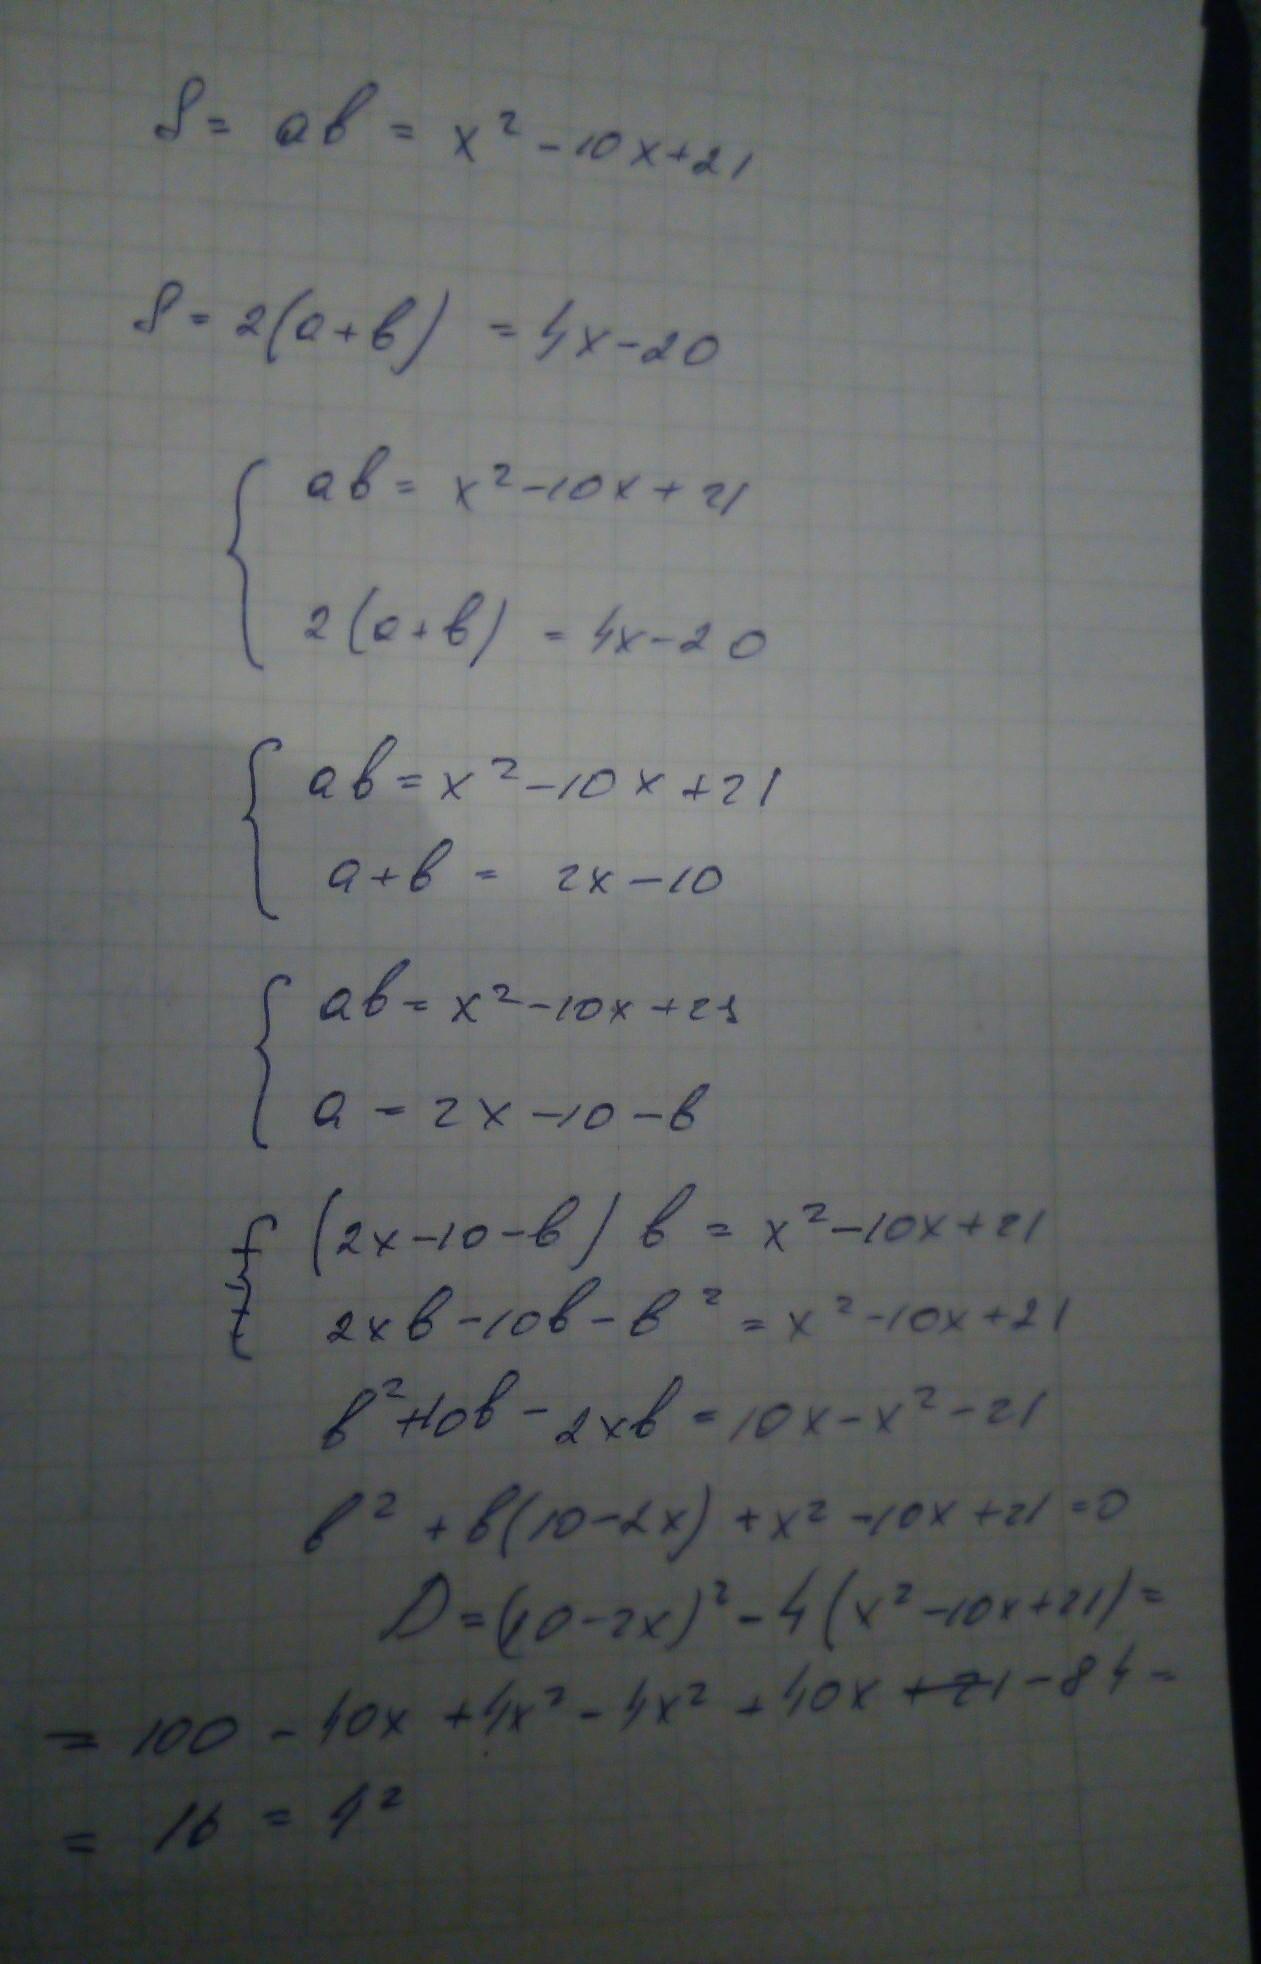 S = ab = x² - 10x + 21
S = 2(a+b) = 4x - 20
{ ab = x² - 10x + 21
2(a+b) = 4x - 20
{ ab = x² - 10x + 21
a + b = 2x - 10
{ ab = x² - 10x + 21
a = 2x - 10 - b
(2x - 10 - b) b = x² - 10x + 21
2xb - 10b - b² = x² - 10x + 21
b² + 10b - 2xb = 10x - x² - 21
b² + b(10 - 2x) + x² - 10x + 21 = 0
D = (10 - 2x)² - 4(x² - 10x + 21) =
= 100 - 40x + 4x² - 4x² + 40x - 84 =
= 16 = 4²